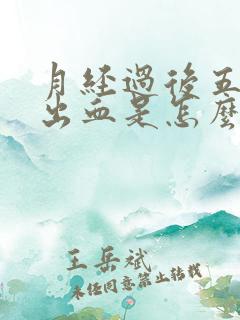 月經過後五
出血是怎麼
王岳斌
未经同意禁止转载